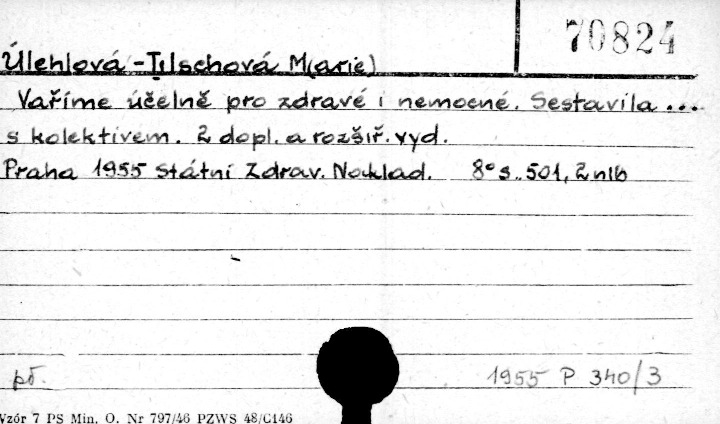 70824
Úlehlová-Tilschová M(arie)
Vaříme účelně pro zdravé i nemocné. Sestavila ...
s kolektivem. 2 dopl. a rozšiř. vyd.
Praha 1955 Státní Zdrav. Naklad. 8° s. 501, 2 nlb
př.
1955 P 340/3
Vzór 7 PS Min. O. Nr 797/46 PZWS 48/C146